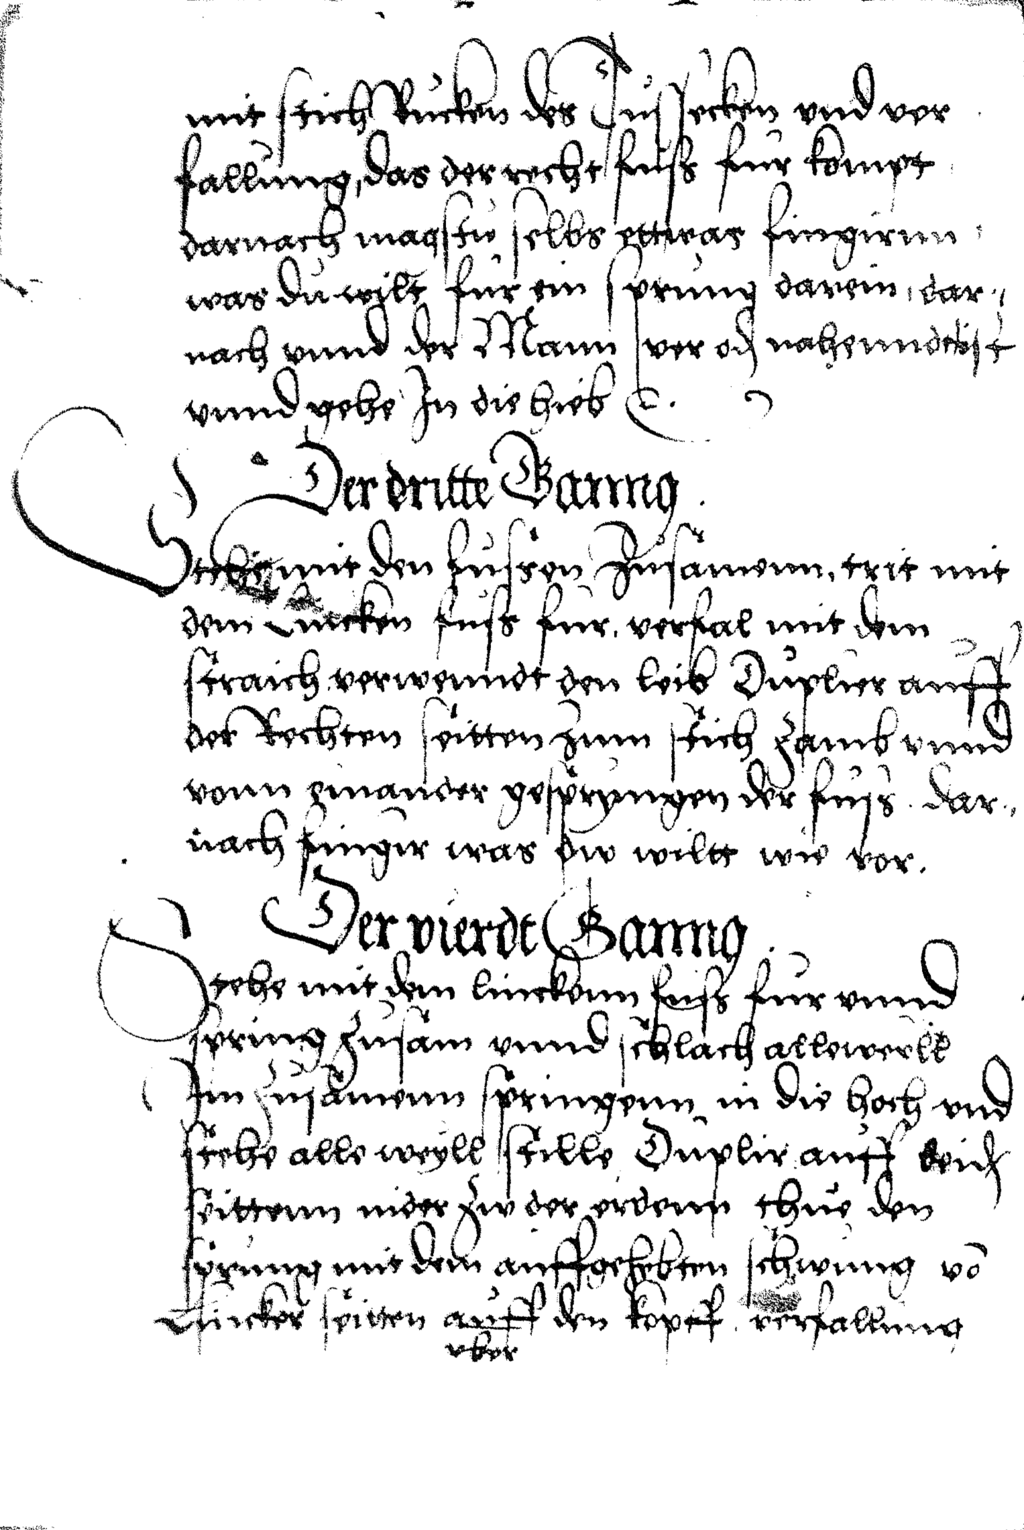 mit stich Rucken des Fussecken vnd ver
fallung, das der recht fuss fur kompt
darnach magstu selbs ettwas fingirnn
was du wilt fur ein sprung darein, dar,,
nach vnnd der Mann ver od nahenndt ist
vnnd gehe In die hieb
Der dritte Ganng
Stehe mit den fussen Zusamenn, trit mit
dem Lincken fuss fur, verfal mit dem
straich verwenndt den leib Duplier auff
der Rechten seitten zum stich Zamb vnnd
vonn einander gesprungen der fuss. dar,,
nach fingir was dw wiltt wie vor.
Der vierdt Ganng
Stehe mit dem linckenn fuss fur vnnd
spring Zusam vnnd schlach alleweyll
Im Zusamenn springenn in die hoch vnd
stehe alle weyll stille Duplir auff beid
seittenn nider Zw der erdenn thue den
sprung mit dem auffgehebten schwung vo
Lincker seitten auff den kopff verfallung
vber